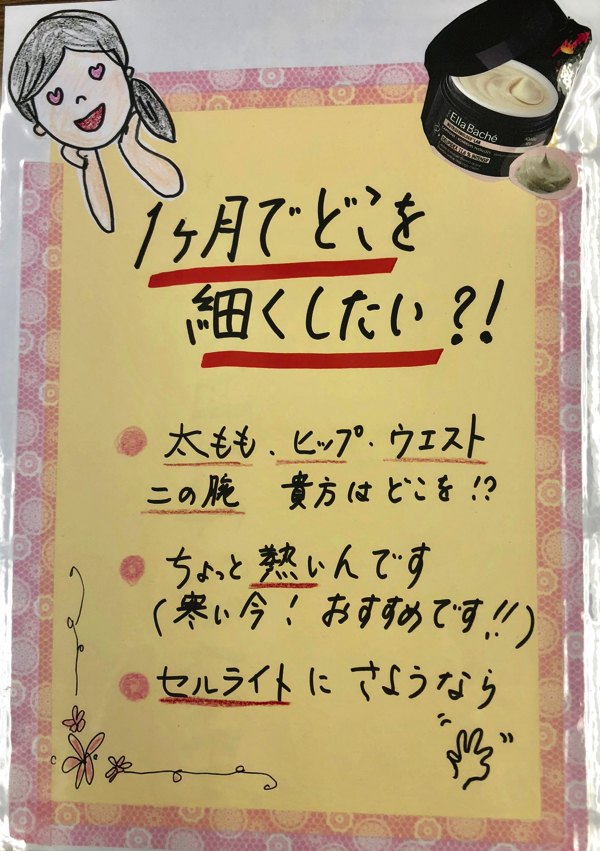 Ella Baché
1ヶ月でどこを
細くしたい?!
太もも、ヒップ・ウエスト
二の腕 貴方はどこを!?
ちょっと熱いんです
(寒い今!おすすめです!!)
セルライトに さようなら